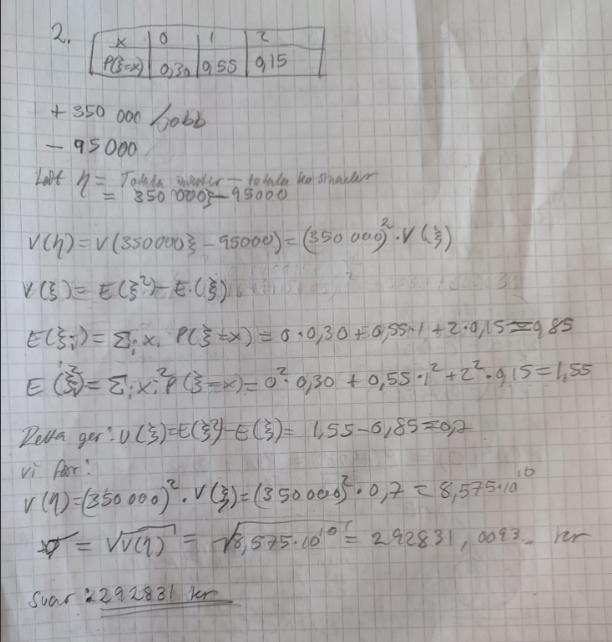 2.
x 0 1 2
P(ξ=x) 0,30 0,55 0,15
+350 000 /jobb
- 95000
Låt η = Totala intäkter - totala kostnader
= 350 000ξ - 95000
V(η) = V(350000ξ - 95000) = (350 000)² · V(ξ)
V(ξ) = E(ξ²) - E(ξ)
E(ξ) = Σᵢ xᵢ P(ξ=x) = 0·0,30 + 0,55·1 + 2·0,15 = 0,85
E(ξ²) = Σᵢ xᵢ² P(ξ=x) = 0²·0,30 + 0,55·1² + 2²·0,15 = 1,55
Detta ger: V(ξ) = E(ξ²) - E(ξ) = 1,55 - 0,85 = 0,7
vi får:
V(η) = (350 000)² · V(ξ) = (350 000)² · 0,7 = 8,575·10¹⁰
σ = √V(η) = √8,575·10¹⁰ = 292831, 0093... kr
Svar: 292831 kr